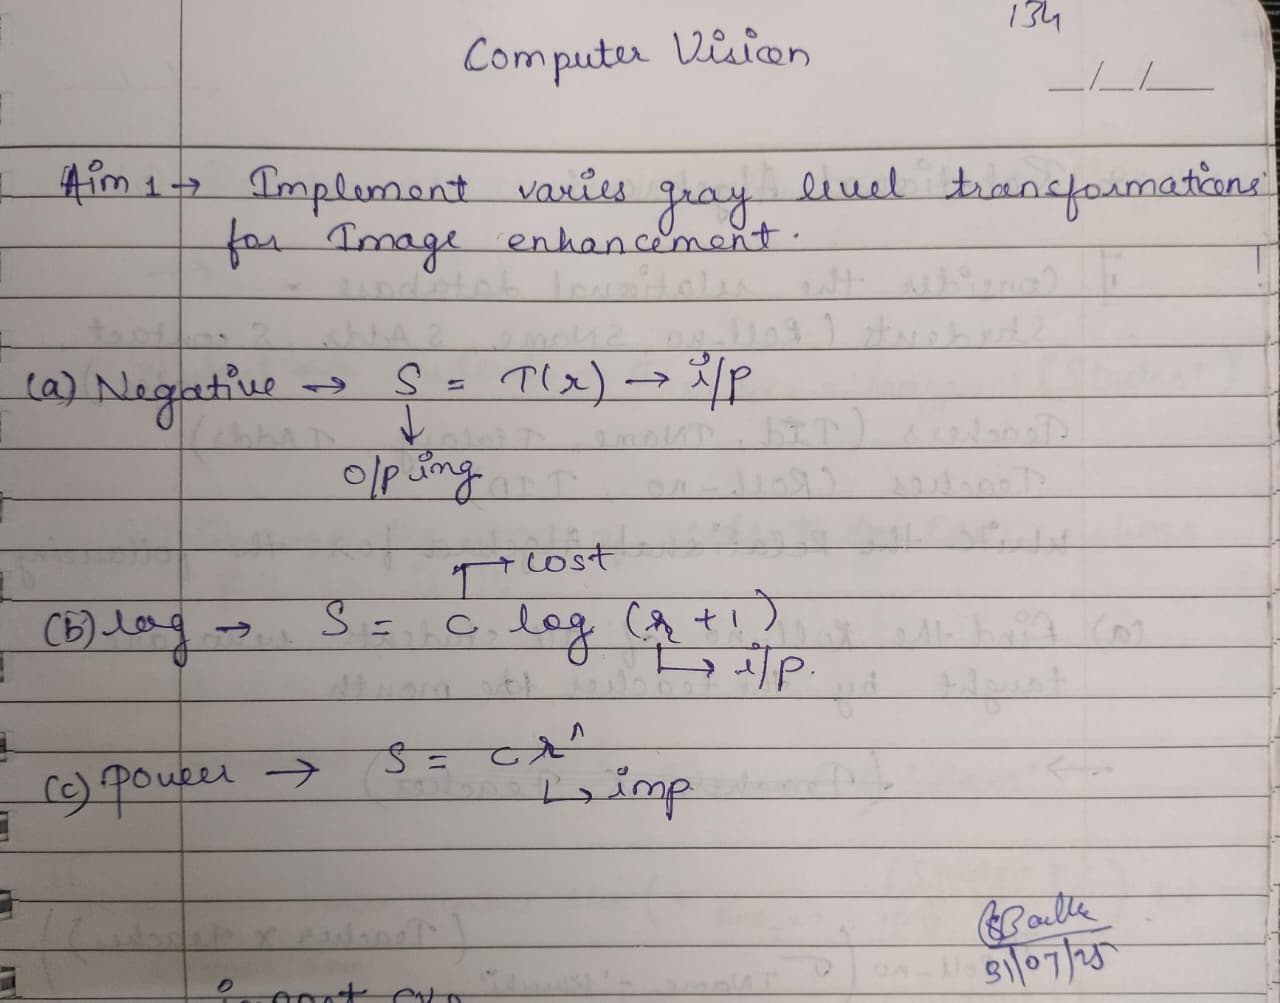 134
Computer Vision
_/_/_
Aim 1 → Implement varies gray level transformations
for Image enhancement.
(a) Negative → S = T(r) → i/p
↓
o/p img
→ cost
(b) log → S = c log (r + 1)
↳ i/p.
(c) power → S = c r^
↳ imp
31/07/25
import cv2